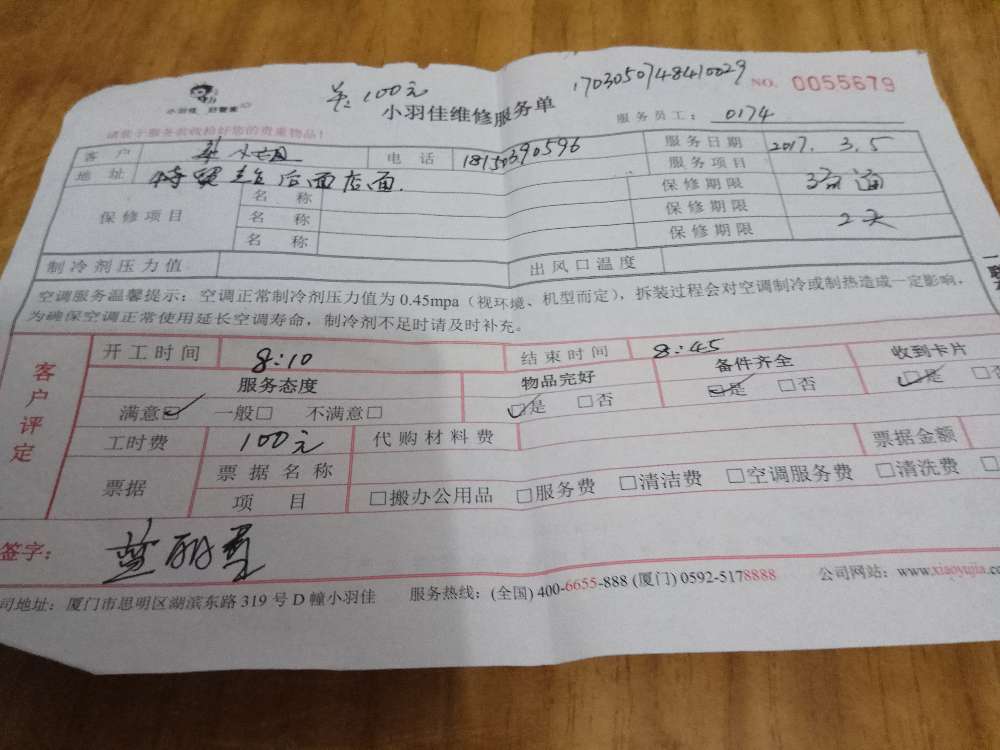 单:100元
1703050748410029
NO. 0055679
小羽佳 好管家
小羽佳维修服务单
服务员工: 0174
请客户服务前收检好您的贵重物品!
客户 小姐 电话 18150390596 服务日期 2017.3.5
地址 后面店面. 服务项目
保修项目 名称 保修期限
名称 保修期限 2天
名称 保修期限
制冷剂压力值 出风口温度
空调服务温馨提示:空调正常制冷剂压力值为0.45mpa(视环境、机型而定),拆装过程会对空调制冷或制热造成一定影响,
为确保空调正常使用延长空调寿命,制冷剂不足时请及时补充。
客户评定
开工时间 8:10 结束时间 8:45
服务态度 物品完好 备件齐全 收到卡片
满意☑ 一般□ 不满意□ ☑是 □否 ☑是 □否 ☑是 □否
工时费 100元 代购材料费 票据金额
票据 票据名称
项目 □搬办公用品 □服务费 □清洁费 □空调服务费 □清洗费 □
签字:
司地址:厦门市思明区湖滨东路319号D幢小羽佳 服务热线:(全国)400-6655-888(厦门)0592-5178888 公司网站:www.xiaoyujia.co